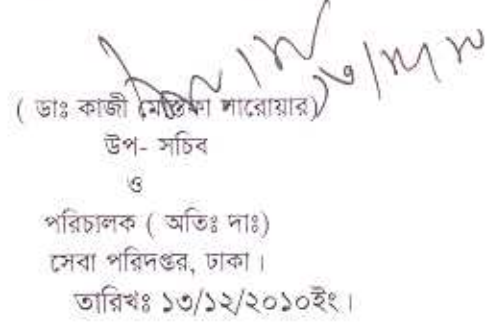 ( ডাঃ কাজী মোস্তফা সারোয়ার)
উপ- সচিব
ও
পরিচালক ( অতিঃ দাঃ)
সেবা পরিদপ্তর, ঢাকা।
তারিখঃ ১৩/১২/২০১০ইং।